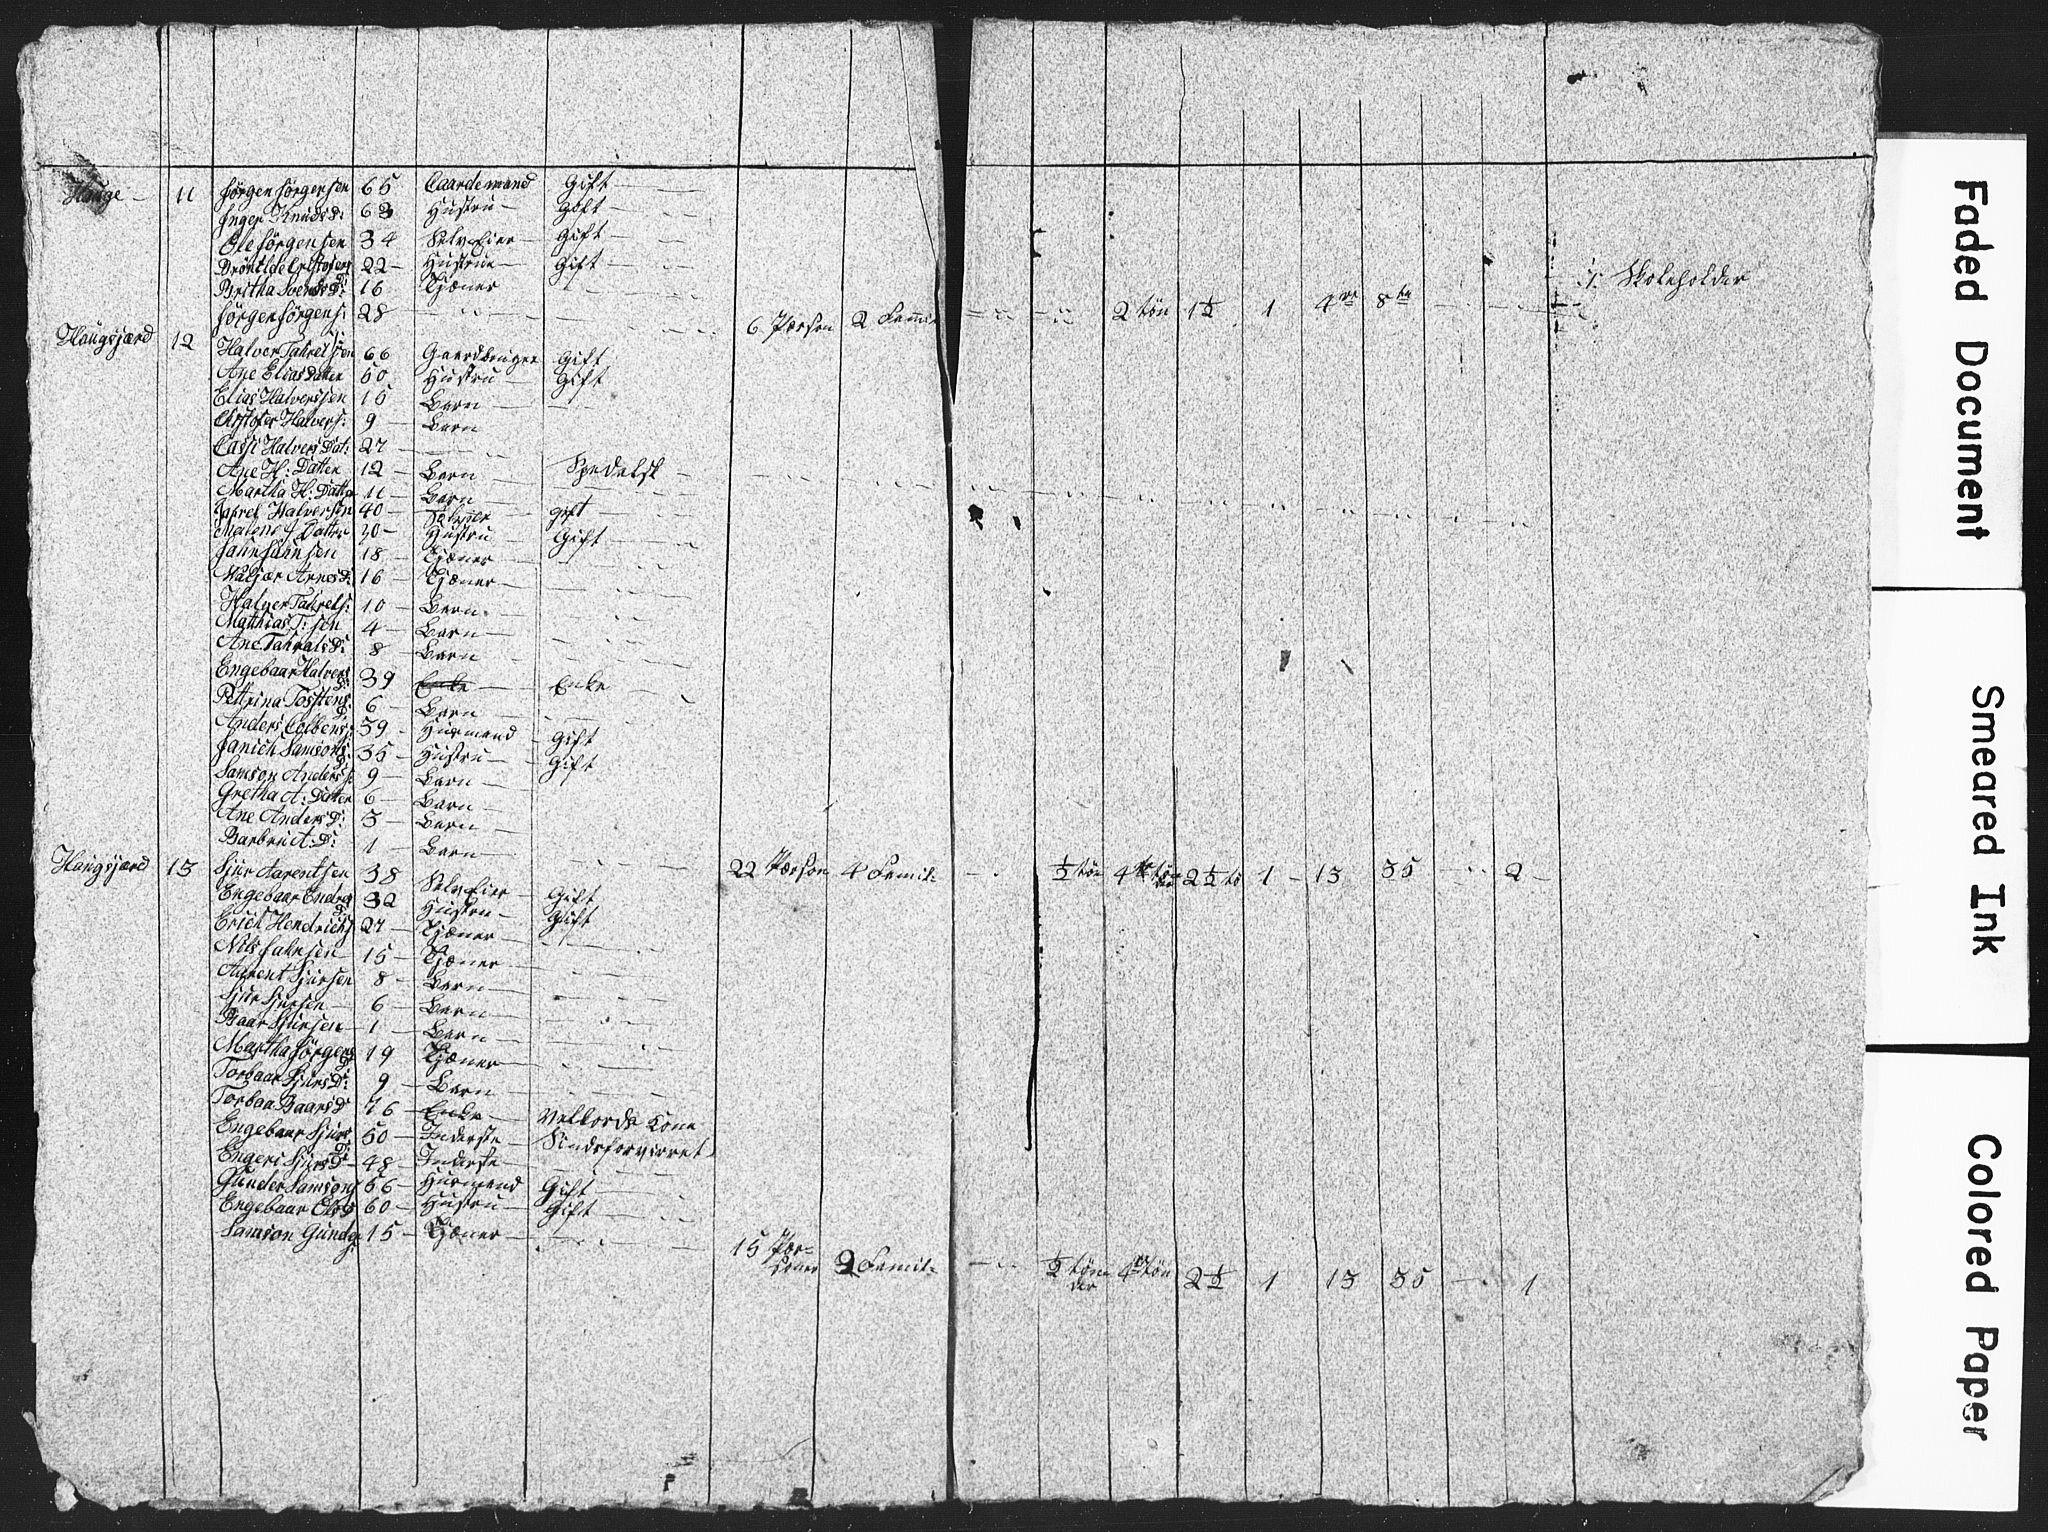 Hauge - 11 Jørgen Jørgensen 65 Gaardemand Gift
Inger Knuds D: 63 Hustru Gift
Ole Jørgensen 34 Selv Eier Gift
22 Hustrue Gift
Britha Svends D: 16 Tjæner
1: Skoleholder
Jørgen Jørgens: 28 6 Pærson 2 Fammi 2 tön 1½ 1 4re 8te
Haugsjærd 12 Halver Tahrelsen 66 Gaardbruger Gift
Ane Elias Datter 50 Hustru Gift
Elias Halverssen 15 Barn
Cristofer Halvers: 9 Barn
Halvers Dat: 27
Ane H: Datter 12 Barn Spedalsk
Martha H: Datter 11 Barn
Tahrel Halversen 40 gift
Malene J Datter 30 Hustru Gift
Jahn Jahnsen 18 Tjæner
Arnes D: 16 Tjæner
Halver Tahrels: 10 Barn
Mathias T: sen 4 Barn
Ane Tahrals D: 8 Barn
Engebaar Halvers D: 39 Enke Enke
Petrina Tostens D: 6 Barn
Anders Colbens: 39 Husmand Gift
Janich Samsons D: 35 Hustru Gift
Samson Anders s: 9 Barn
Gretha A: Datter 6 Barn
Ane Anders D: 3 Barn
Barbru A: D: 1 Barn
Haugsjærd 13 Sjur Aarentsen 38 Selv Eier Gift 22 Pærson 4 Famil: ½ tön 4 tön der 2½ tö 1 13 35 2
Engebaar Endres D: 32 Hustru Gift
Erich Hendrichs 27 Tjæner
Nils Jahnsen 15 Tjæner
Aarent Sjursen 8 Barn
Sjur Sjursen 6 Barn
Baar Sjursen 1 Barn
Martha Jørgens D: 19 Tjæner
Torbaar Sjurs D: 9 Barn
Torbaa Baars D 76 Enke Vellords Cone
Engebaar Sjurs D: 50 Inderste Sindsforvirret
Engeri Sjurs D 48 Inderste
Gunder Samsons 66 Husmand Gift
Engebaar Ols D 60 Hustru Gift
Samson Gunds: 15 Tjæner
15 Pær-
soner 2 Famil: ½ tön
der 4 tön 2½ 1 13 35 1
Faded Document
Smeared Ink
Colored Paper